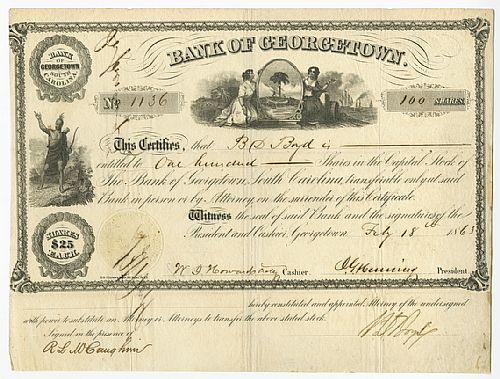 BANK OF GEORGETOWN.
BANK
OF
GEORGETOWN
SOUTH
CAROLINA.
No 1136
100 SHARES
This Certifies, that B D Boyd is
entitled to One hundred Shares in the Capital Stock of
The Bank of Georgetown, South Carolina, transferable only at said
Bank in person or by Attorney on the surrender of this Certificate.
SHARES
$25
EACH.
Witness the seal of said Bank and the signatures of the
President and Cashier, Georgetown Feby 18th 1863
Cashier.
President
hereby constituted and appointed Attorney of the undersigned
with power to substitute an Attorney or Attorneys to transfer the above stated stock.
Signed in the presence of